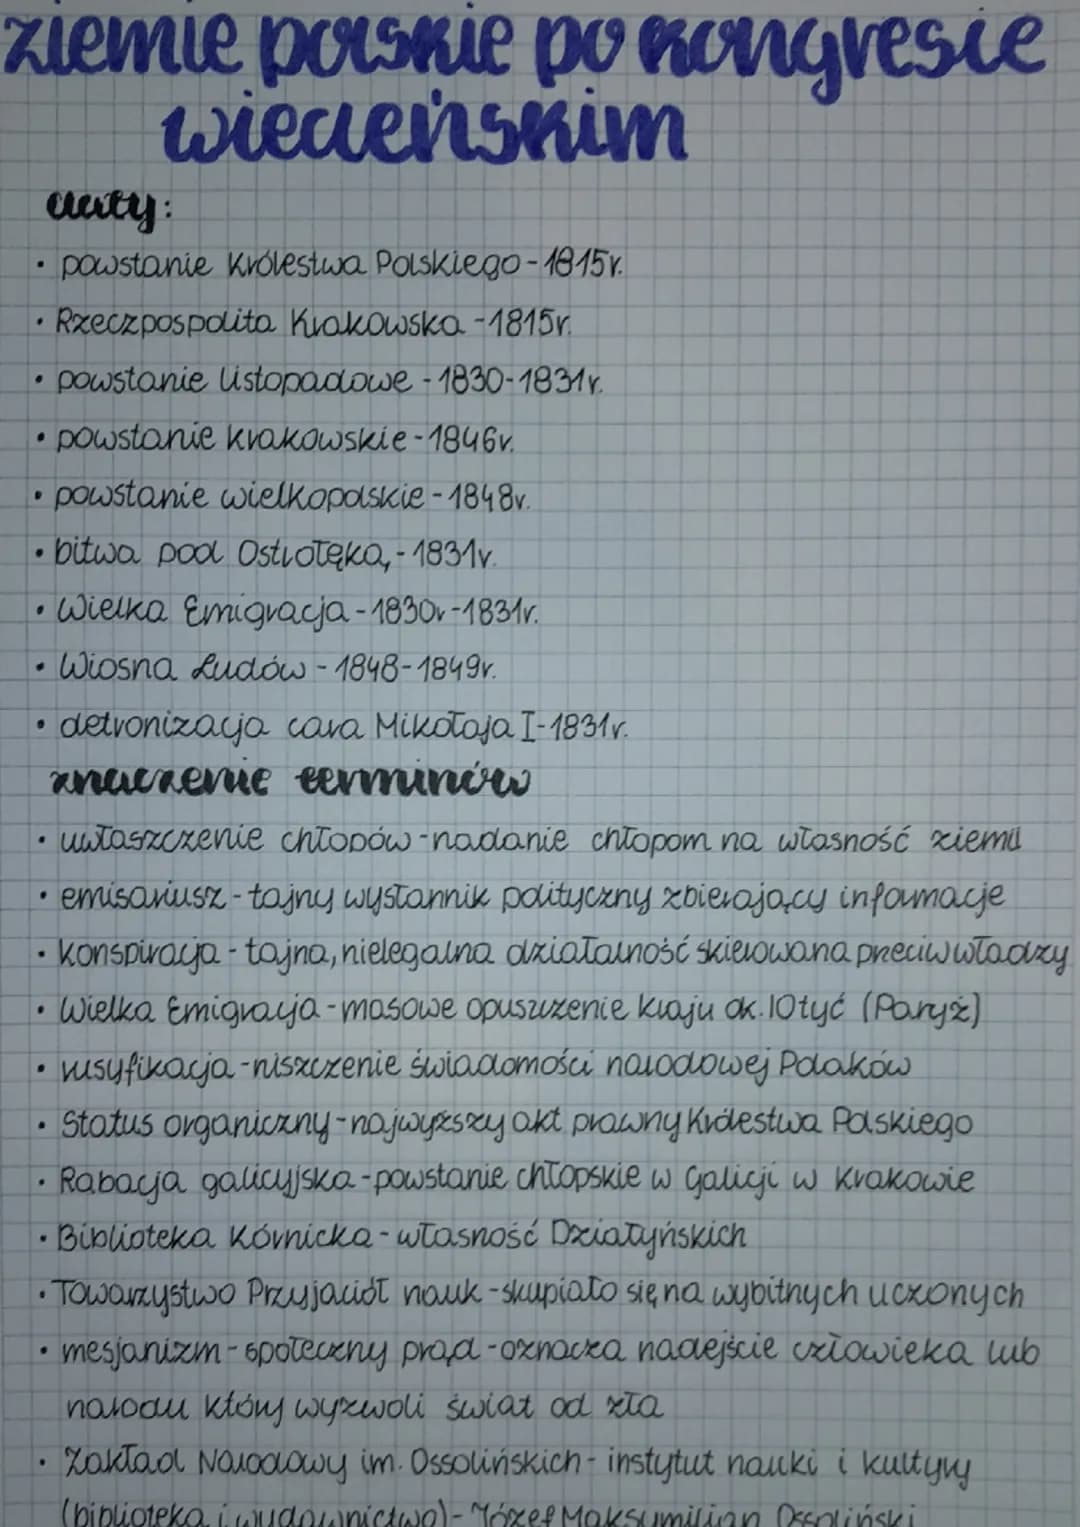 ziemie polskie po kongresie
wiedeńskim
daty:
• powstanie Królestwa Polskiego - 1815r.
• Rzeczpospolita Krakowska - 1815r.
• powstanie listopadowe - 1830-1831r.
• powstanie krakowskie - 1846r.
• powstanie wielkopolskie - 1848r.
• bitwa pod Ostrołęką - 1831r.
• Wielka Emigracja - 1830r-1831r.
• Wiosna Ludów - 1848-1849r.
• detronizacja cara Mikołaja I - 1831r.
znaczenie terminów
• uwłaszczenie chłopów - nadanie chłopom na własność ziemi
• emisariusz - tajny wysłannik polityczny zbierający informacje
• Konspiracja - tajna, nielegalna działalność skierowana przeciw władzy
• Wielka Emigracja - masowe opuszczenie kraju ok. 10 tyć (Paryż)
• rusyfikacja - niszczenie świadomości narodowej Polaków
• Status organiczny - najwyższy akt prawny Królestwa Polskiego
• Rabacja galicyjska - powstanie chłopskie w Galicji w Krakowie
• Biblioteka Kórnicka - własność Działyńskich
• Towarzystwo Przyjaciół nauk - skupiało się na wybitnych uczonych
• mesjanizm - społeczny prąd - oznacza nadejście człowieka lub
narodu który wyzwoli świat od zła
• Zakład Narodowy im. Ossolińskich - instytut nauki i kultury
(biblioteka i wydawnictwo) - Józef Maksymilian Ossoliński